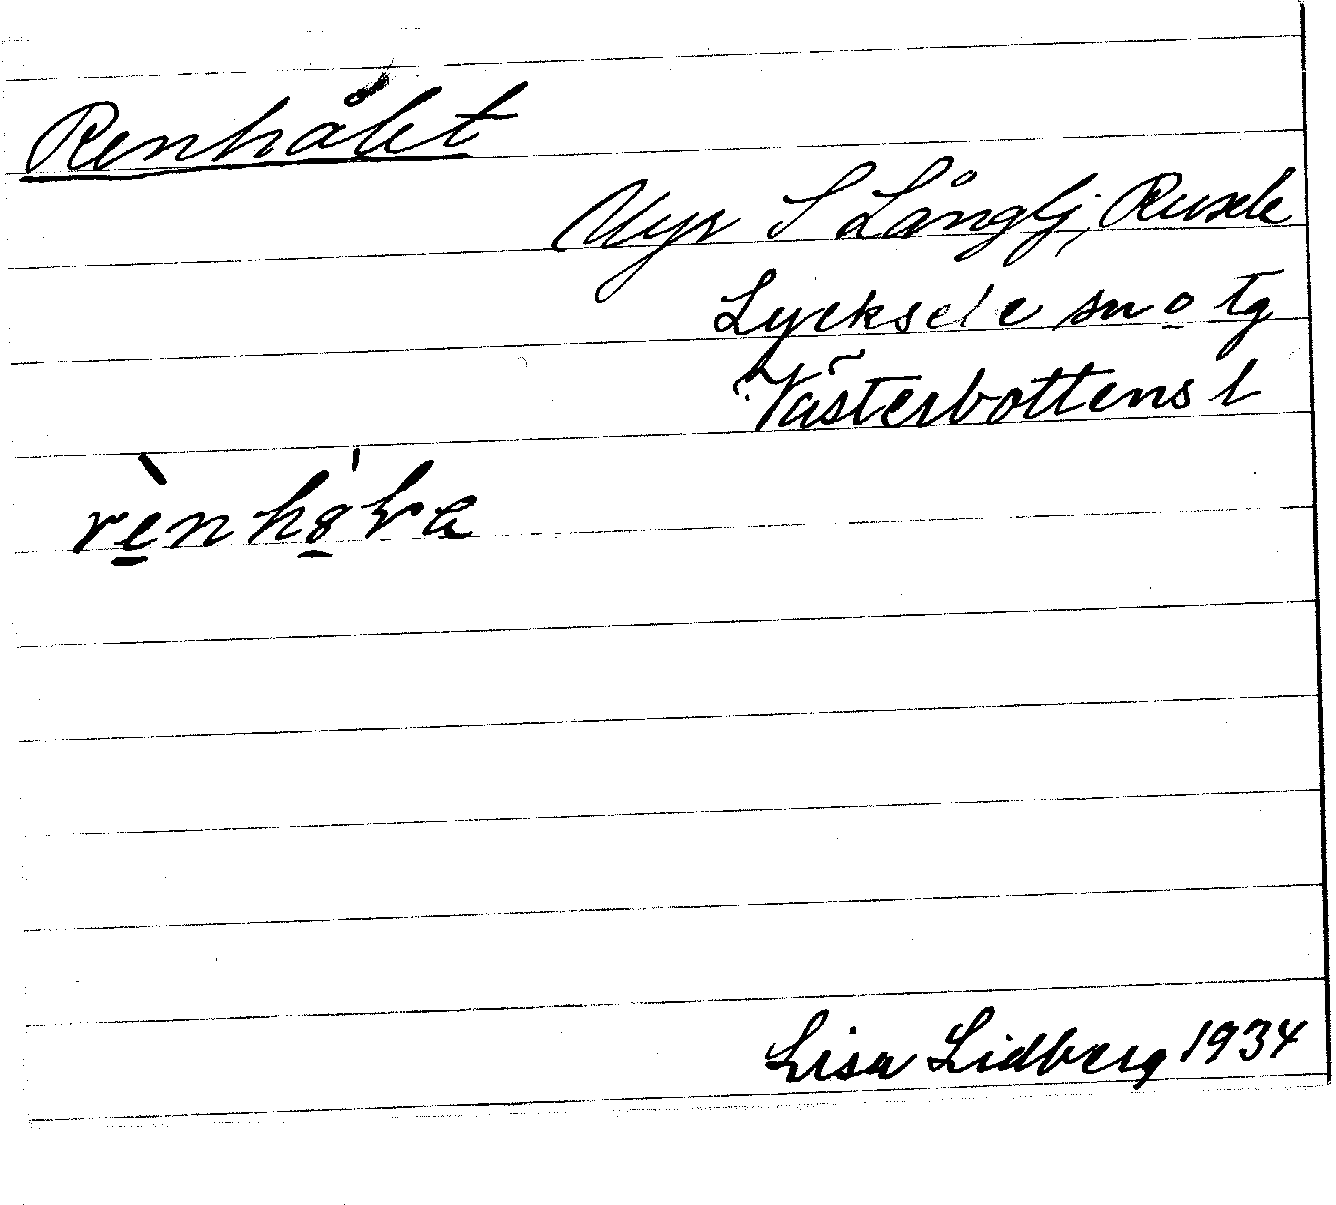 Renhålet
Myr S Långtj, Rusele
Lycksele sn o tg
Västerbottens l
Lisa Lidberg 1934